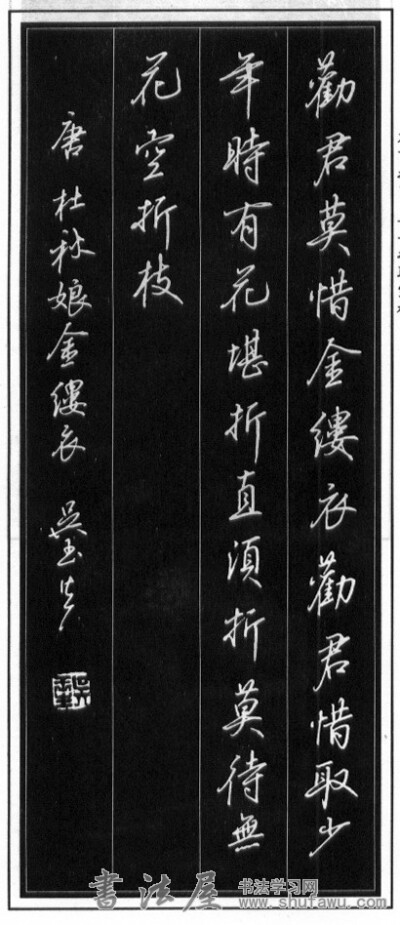 勸君莫惜金縷衣勸君惜取少
年時有花堪折直須折莫待無
花空折枝
唐杜秋娘金縷衣 吳玉生
書法屋 书法学习网
www.shufawu.com